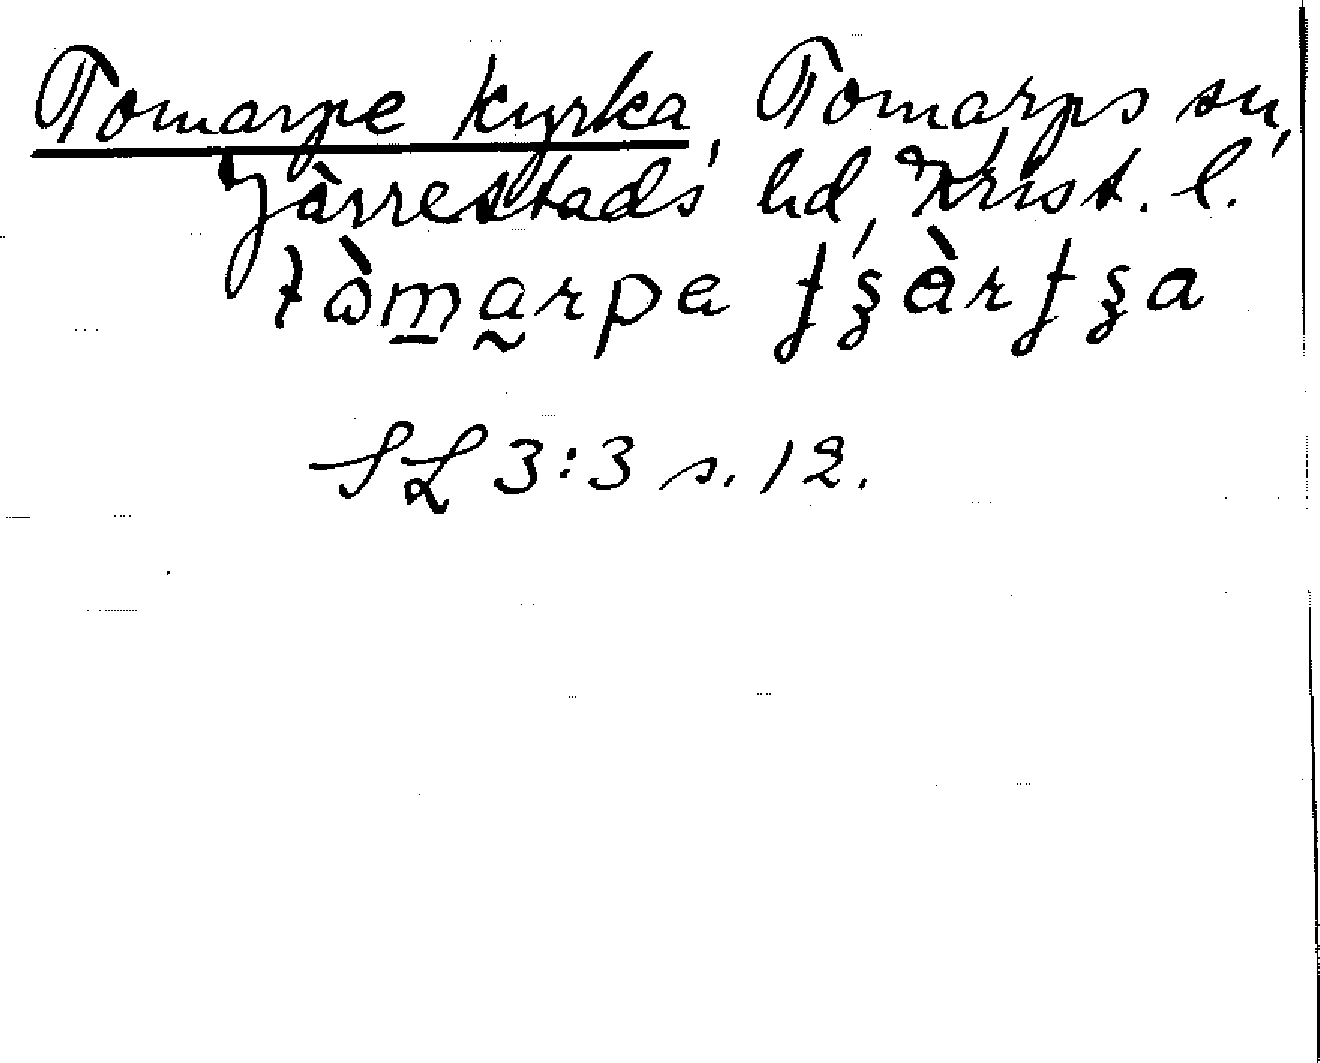 Tomarpe kyrka, Tomarps sn,
Järrestads hd, Krist. l.
SL 3:3 s. 12.